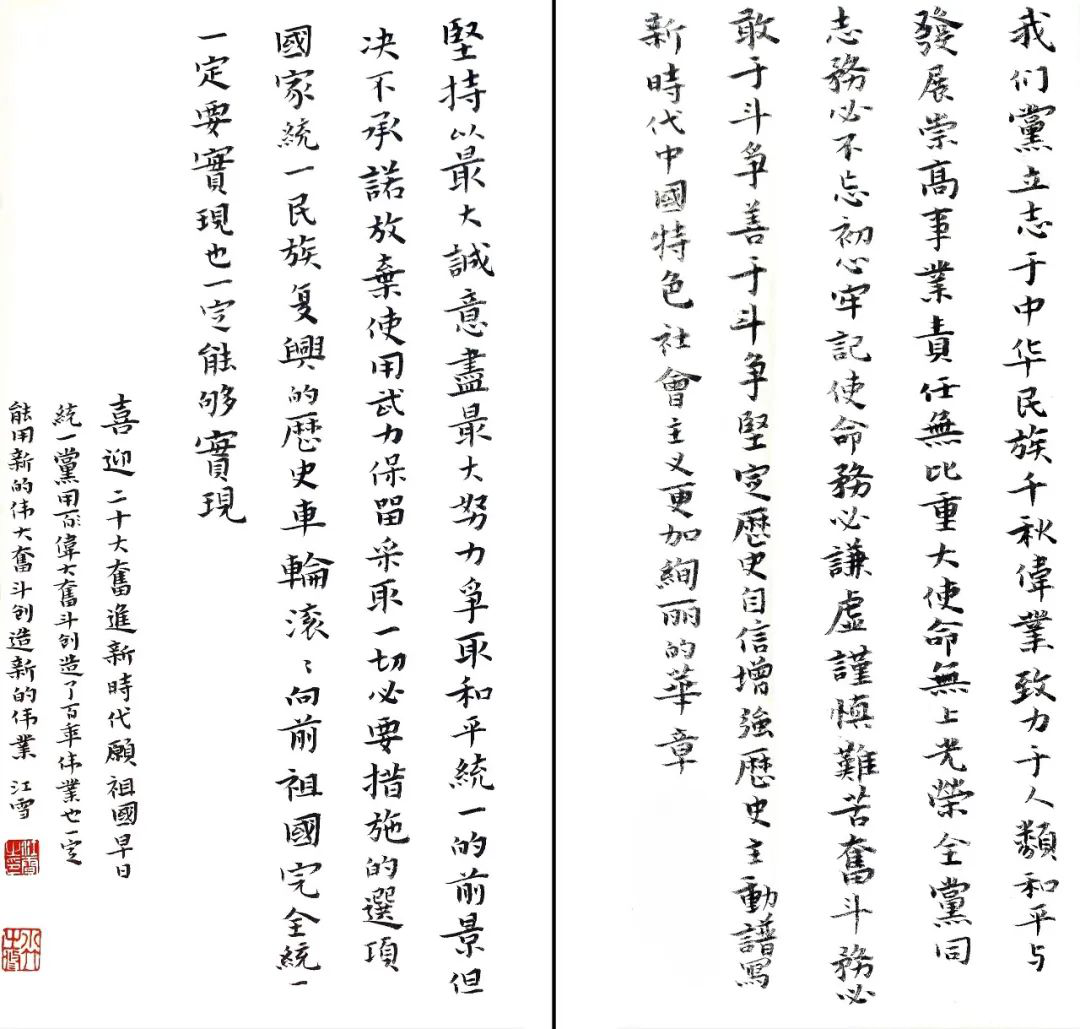 我们黨立志于中华民族千秋偉業致力于人類和平与
發展崇高事業責任無比重大使命無上光榮全黨同
志務必不忘初心牢記使命務必謙虚謹慎難苦奮斗務必
敢于斗争善于斗争堅定歷史自信增強歷史主動譜寫
新時代中國特色社會主义更加絢丽的華章
堅持以最大誠意盡最大努力爭取和平統一的前景但
决不承諾放棄使用武力保留采取一切必要措施的選項
國家統一民族复興的歷史車輪滚〻向前祖國完全統一
一定要實現也一定能够實現
喜迎二十大奮進新時代願祖國早日
統一黨用百年偉大奮斗创造了百年伟業也一定
能用新的伟大奮斗创造新的伟業 江雪
江雪之印